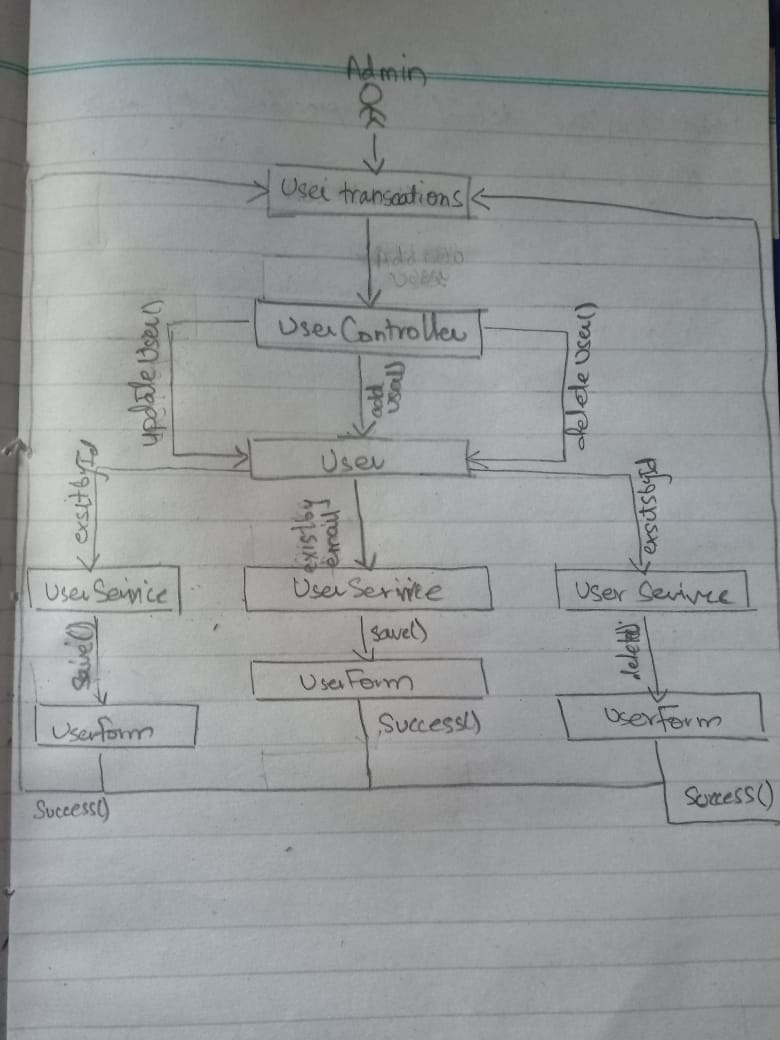 Admin
User transcations
Add into
User
UserController
updateUser()
add
User()
deleteUser()
User
exsitbyId
existby
email
exsitsbyId
UserService
UserService
User Serivce
save()
save()
delete()
UserForm
Userform
Userform
Success()
Success()
Success()